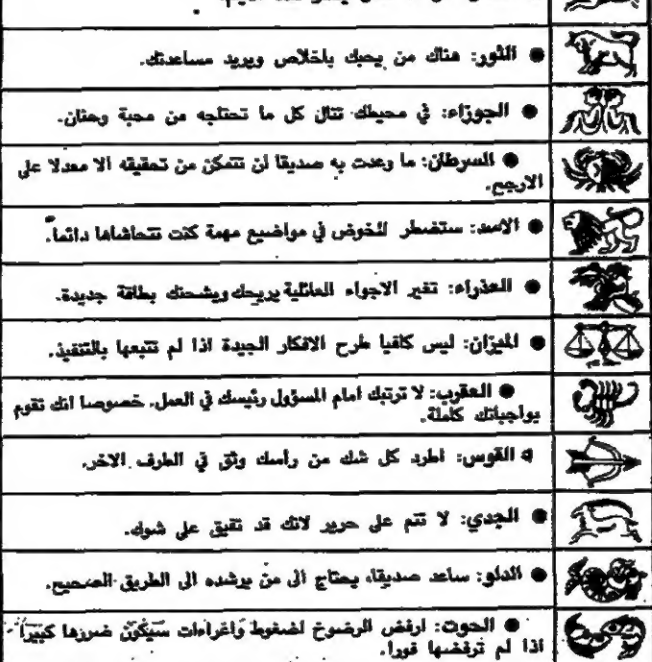 ● الثور: هناك من يحبك باخلاص ويريد مساعدتك.
● الجوزاء: في محيطك تنال كل ما تحتاجه من محبة وحنان.
● السرطان: ما وعدت به صديقا لن تتمكن من تحقيقه الا معدلا على
الارجح.
● الاسد: ستضطر للخوض في مواضيع مهمة كنت تتحاشاها دائماً.
● العذراء: تغير الاجواء العائلية يريحك ويشحنك بطاقة جديدة.
● الميزان: ليس كافيا طرح الافكار الجيدة اذا لم تتبعها بالتنفيذ.
● العقرب: لا ترتبك امام المسؤول رئيسك في العمل. خصوصا انك تقوم
بواجباتك كاملة.
● القوس: اطرد كل شك من رأسك وثق في الطرف الاخر.
● الجدي: لا تنم على حرير لانك قد تفيق على شوك.
● الدلو: ساعد صديقا، يحتاج الى من يرشده الى الطريق الصحيح.
● الحوت: ارفض الرضوخ لضغوط واغراءات سيكون ضررها كبيراً
اذا لم ترفضها فورا.